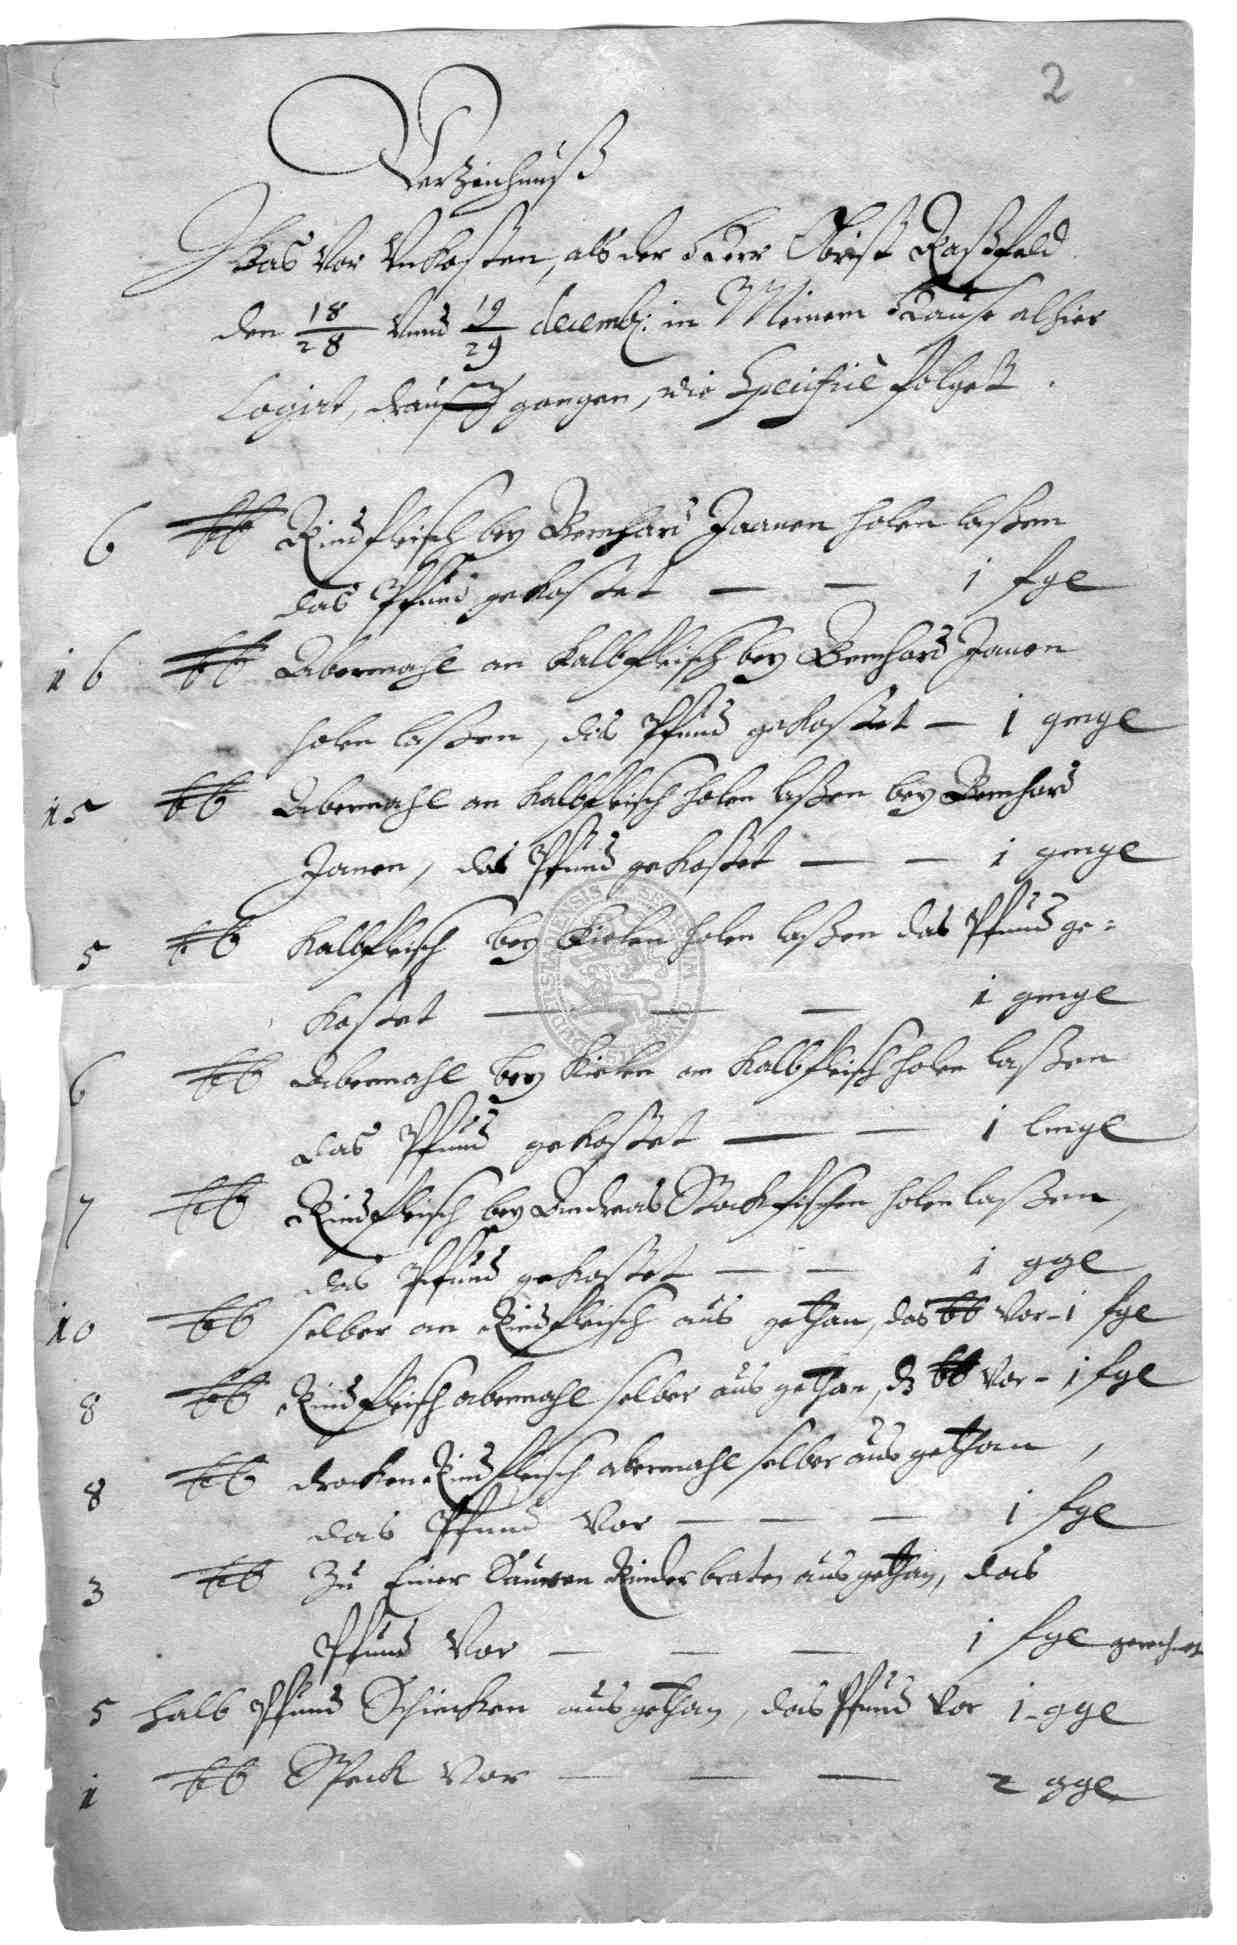 2
Verzeichnuß
Was Vor Vnkosten, als der Herr Obrist Raßfeld
den 18/28 Vnnd 19/29 decemb: in Meinem Hause alhier
Logirt, drauf gangen, wie Specificé folgett.
6 ℔ Rindfleisch bey Bernhard Jaanen holen laßen
das Pfund gekostet — — 1 fgl
16 ℔ Abermahl an Kalbfleisch bey Bernhard Janen
holen laßen, das Pfund gekostet — 1 gmgl
15 ℔ Abermahl an Kalbfleisch holen laßen bey Bernhard
Janen, das Pfund gekostet — — 1 gmgl
5 ℔ Kalbfleisch bey Kielen holen laßen das Pfund ge=
kostet — — — 1 gmgl
6 ℔ Abermahl bey Kielen an Kalbfleisch holen laßen
das Pfund gekostet — — 1 lmgl
7 ℔ Rindfleisch bey Andreas Stockfischen holen laßen,
das Pfund gekostet — — 1 ggl
10 ℔ selber an Rindfleisch aus gethan, das ℔ Vor - 1 fgl
8 ℔ Rindfleisch abermahl selber aus gethan, dz ℔ Vor - 1 fgl
8 ℔ drocken Rindfleisch abermahl selber aus gethan,
das Pfund Vor — — — 1 fgl
3 ℔ Zu Einer Sauren Rinder braten aus gethan, das
Pfund Vor — — — 1 fgl gerechnet
5 halb Pfund Schincken aus gethan, das Pfund Vor 1 - ggl
1 ℔ Speck Vor — — — 2 ggl